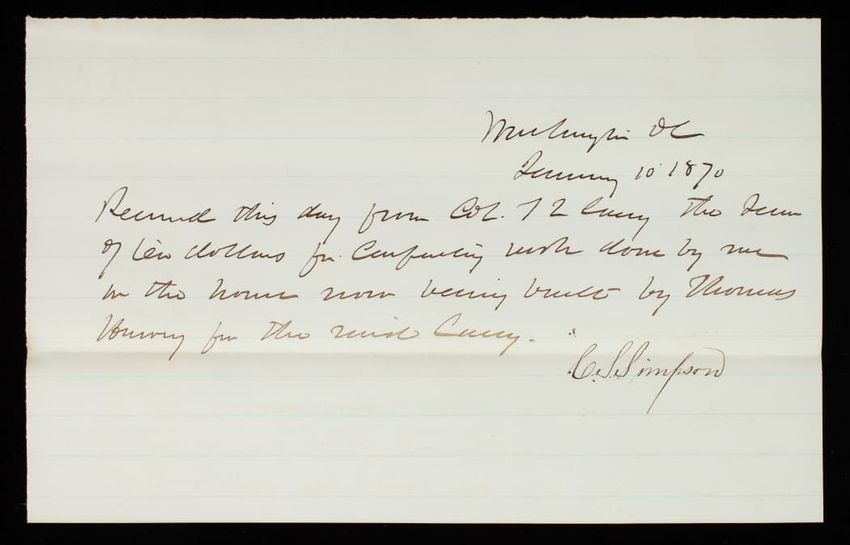 Washington DC
January 10 1870
Received this day from Col. T L Casey the sum
of ten dollars for Carpentering work done by me
on the house now being built by Thomas
for the said Casey.
C. S. Simpson